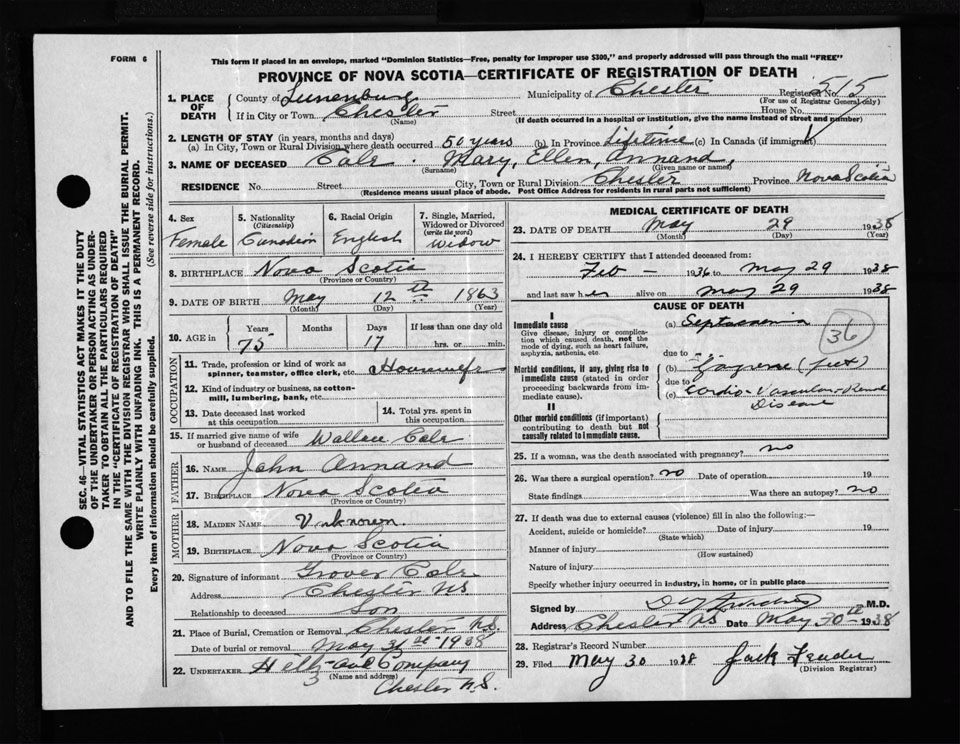 FORM 6
This form if placed in an envelope, marked "Dominion Statistics—Free, penalty for improper use $300," and properly addressed will pass through the mail "FREE"
PROVINCE OF NOVA SCOTIA—CERTIFICATE OF REGISTRATION OF DEATH
SEC. 46—VITAL STATISTICS ACT MAKES IT THE DUTY
OF THE UNDERTAKER OR PERSON ACTING AS UNDER-
TAKER TO OBTAIN ALL THE PARTICULARS REQUIRED
IN THE "CERTIFICATE OF REGISTRATION OF DEATH"
AND TO FILE THE SAME WITH THE DIVISION REGISTRAR WHO SHALL ISSUE THE BURIAL PERMIT.
WRITE PLAINLY WITH UNFADING INK. THIS IS A PERMANENT RECORD.
Every item of information should be carefully supplied. (See reverse side for instructions.)
1. PLACE OF DEATH County of Lunenburg Municipality of Chester Registered No. 515
(For use of Registrar General only)
If in City or Town Chester Street House No.
(Name) (If death occurred in a hospital or institution, give the name instead of street and number)
2. LENGTH OF STAY (in years, months and days)
(a) In City, Town or Rural Division where death occurred 50 years (b) In Province Lifetime (c) In Canada (if immigrant)
3. NAME OF DECEASED Cole. Mary, Ellen, Annand,
(Surname) (Given name or names)
RESIDENCE No. Street City, Town or Rural Division Chester Province Nova Scotia
(Residence means usual place of abode. Post Office Address for residents in rural parts not sufficient)
4. Sex Female
5. Nationality (Citizenship) Canadian
6. Racial Origin English
7. Single, Married, Widowed or Divorced (write the word) Widow
8. BIRTHPLACE Nova Scotia
(Province or Country)
9. DATE OF BIRTH May 12th 1863
(Month) (Day) (Year)
10. AGE in Years 75 Months Days 17 If less than one day old hrs. or min.
OCCUPATION
11. Trade, profession or kind of work as spinner, teamster, office clerk, etc. Housewife
12. Kind of industry or business, as cotton-mill, lumbering, bank, etc.
13. Date deceased last worked at this occupation
14. Total yrs. spent in this occupation
15. If married give name of wife or husband of deceased Wallace Cole
FATHER
16. NAME John Annand
17. BIRTHPLACE Nova Scotia
(Province or Country)
MOTHER
18. MAIDEN NAME Unknown.
19. BIRTHPLACE Nova Scotia
(Province or Country)
20. Signature of informant Grover Cole
Address Chester NS
Relationship to deceased Son
21. Place of Burial, Cremation or Removal Chester N.S.
Date of burial or removal May 31st 1938
22. UNDERTAKER and Company
(Name and address)
Chester N.S.
MEDICAL CERTIFICATE OF DEATH
23. DATE OF DEATH May 29 1938
(Month) (Day) (Year)
24. I HEREBY CERTIFY that I attended deceased from:
Feb — 1936 to May 29 1938
and last saw her alive on May 29 1938
CAUSE OF DEATH
I
Immediate cause
Give disease, injury or complication which caused death, not the mode of dying, such as heart failure, asphyxia, asthenia, etc.
(a) Septicaemia
36
due to
Morbid conditions, if any, giving rise to immediate cause (stated in order proceeding backwards from immediate cause).
(b) Gangrene (feet)
due to
(c) Cardio-Vascular-Renal
Disease
II
Other morbid conditions (if important) contributing to death but not causally related to immediate cause.
25. If a woman, was the death associated with pregnancy? no
26. Was there a surgical operation? no Date of operation 19
State findings Was there an autopsy? no
27. If death was due to external causes (violence) fill in also the following:—
Accident, suicide or homicide? Date of injury 19
(State which)
Manner of injury
(How sustained)
Nature of injury
Specify whether injury occurred in industry, in home, or in public place
Signed by M.D.
Address Chester NS Date May 30th 1938
28. Registrar's Record Number
29. Filed May 30 1938 Jack
(Division Registrar)